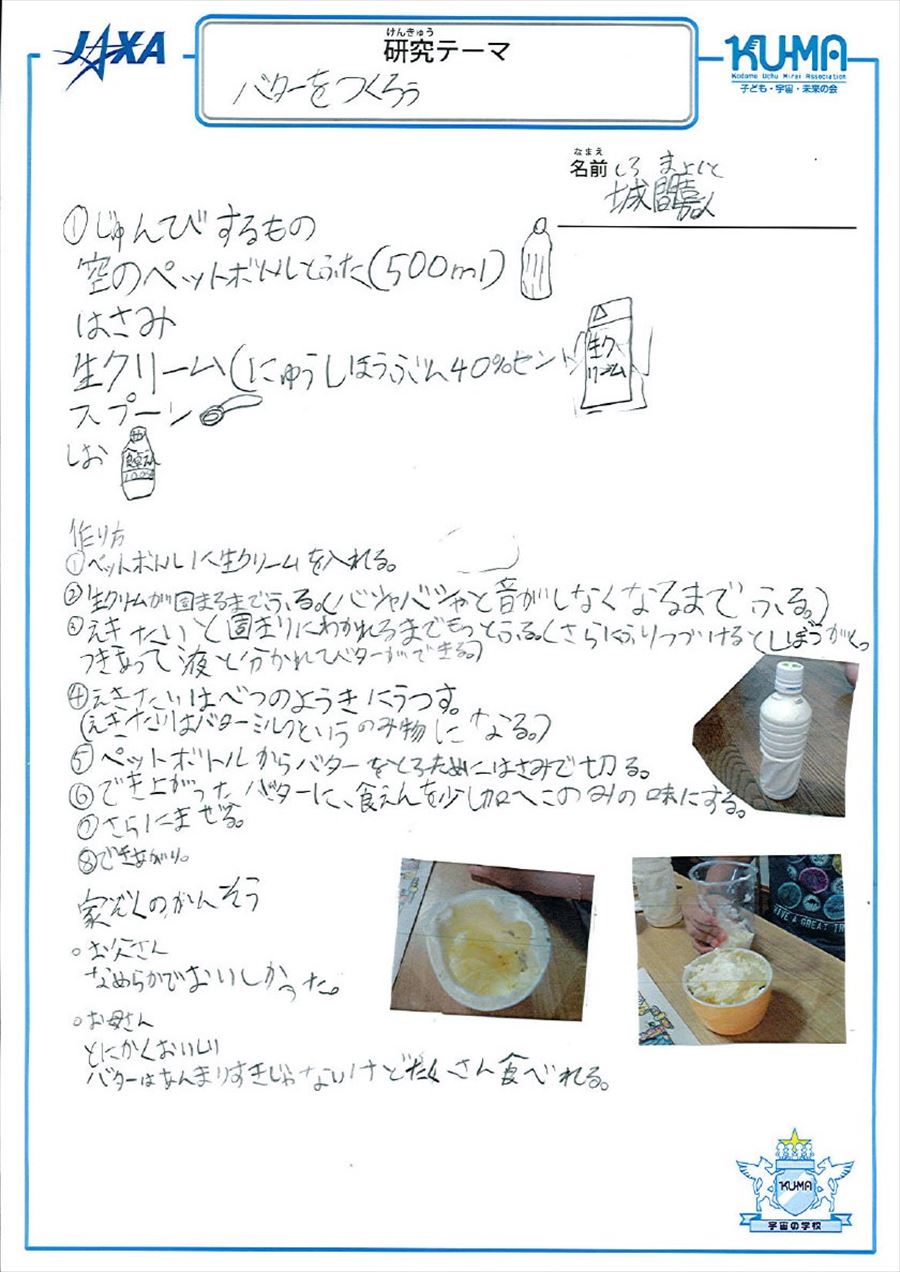 JAXA
けんきゅう
研究テーマ
バターをつくろう
KU-MA
Kodomo Uchu Mirai Association
子ども・宇宙・未来の会
なまえ
名前
しろ まよしと
城間
①じゅんびするもの
空のペットボトルとふた(500ml)
はさみ
生クリーム(にゅうしほうぶん40%セント)
生ク
リーム
スプーン
しお
食卓えん
100g
作り方
①ペットボトルに生クリームを入れる。
②生クリムが固まるまでふる。(バシャバシャと音がしなくなるまでふる。)
③えきたいと固まりにわかれるまでもっとふる。(さらにふりつづけるとしぼうがくっ
つきあって液と分かれてバターができる。)
④えきたいはべつのようきにうつす。
(えきたいはバターミルクというのみ物になる。)
⑤ペットボトルからバターをとるためにはさみで切る。
⑥でき上がったバターに、食えんを少し加へこのみの味にする。
⑦さらにまぜる。
⑧できあがり。
家ぞくのかんそう
。お父さん
なめらかでおいしかった。
。お母さん
とにかくおいしい
バターはあんまりすきじゃないけどたくさん食べれる。
VIVE A GREAT TR
KU-MA
宇宙の学校